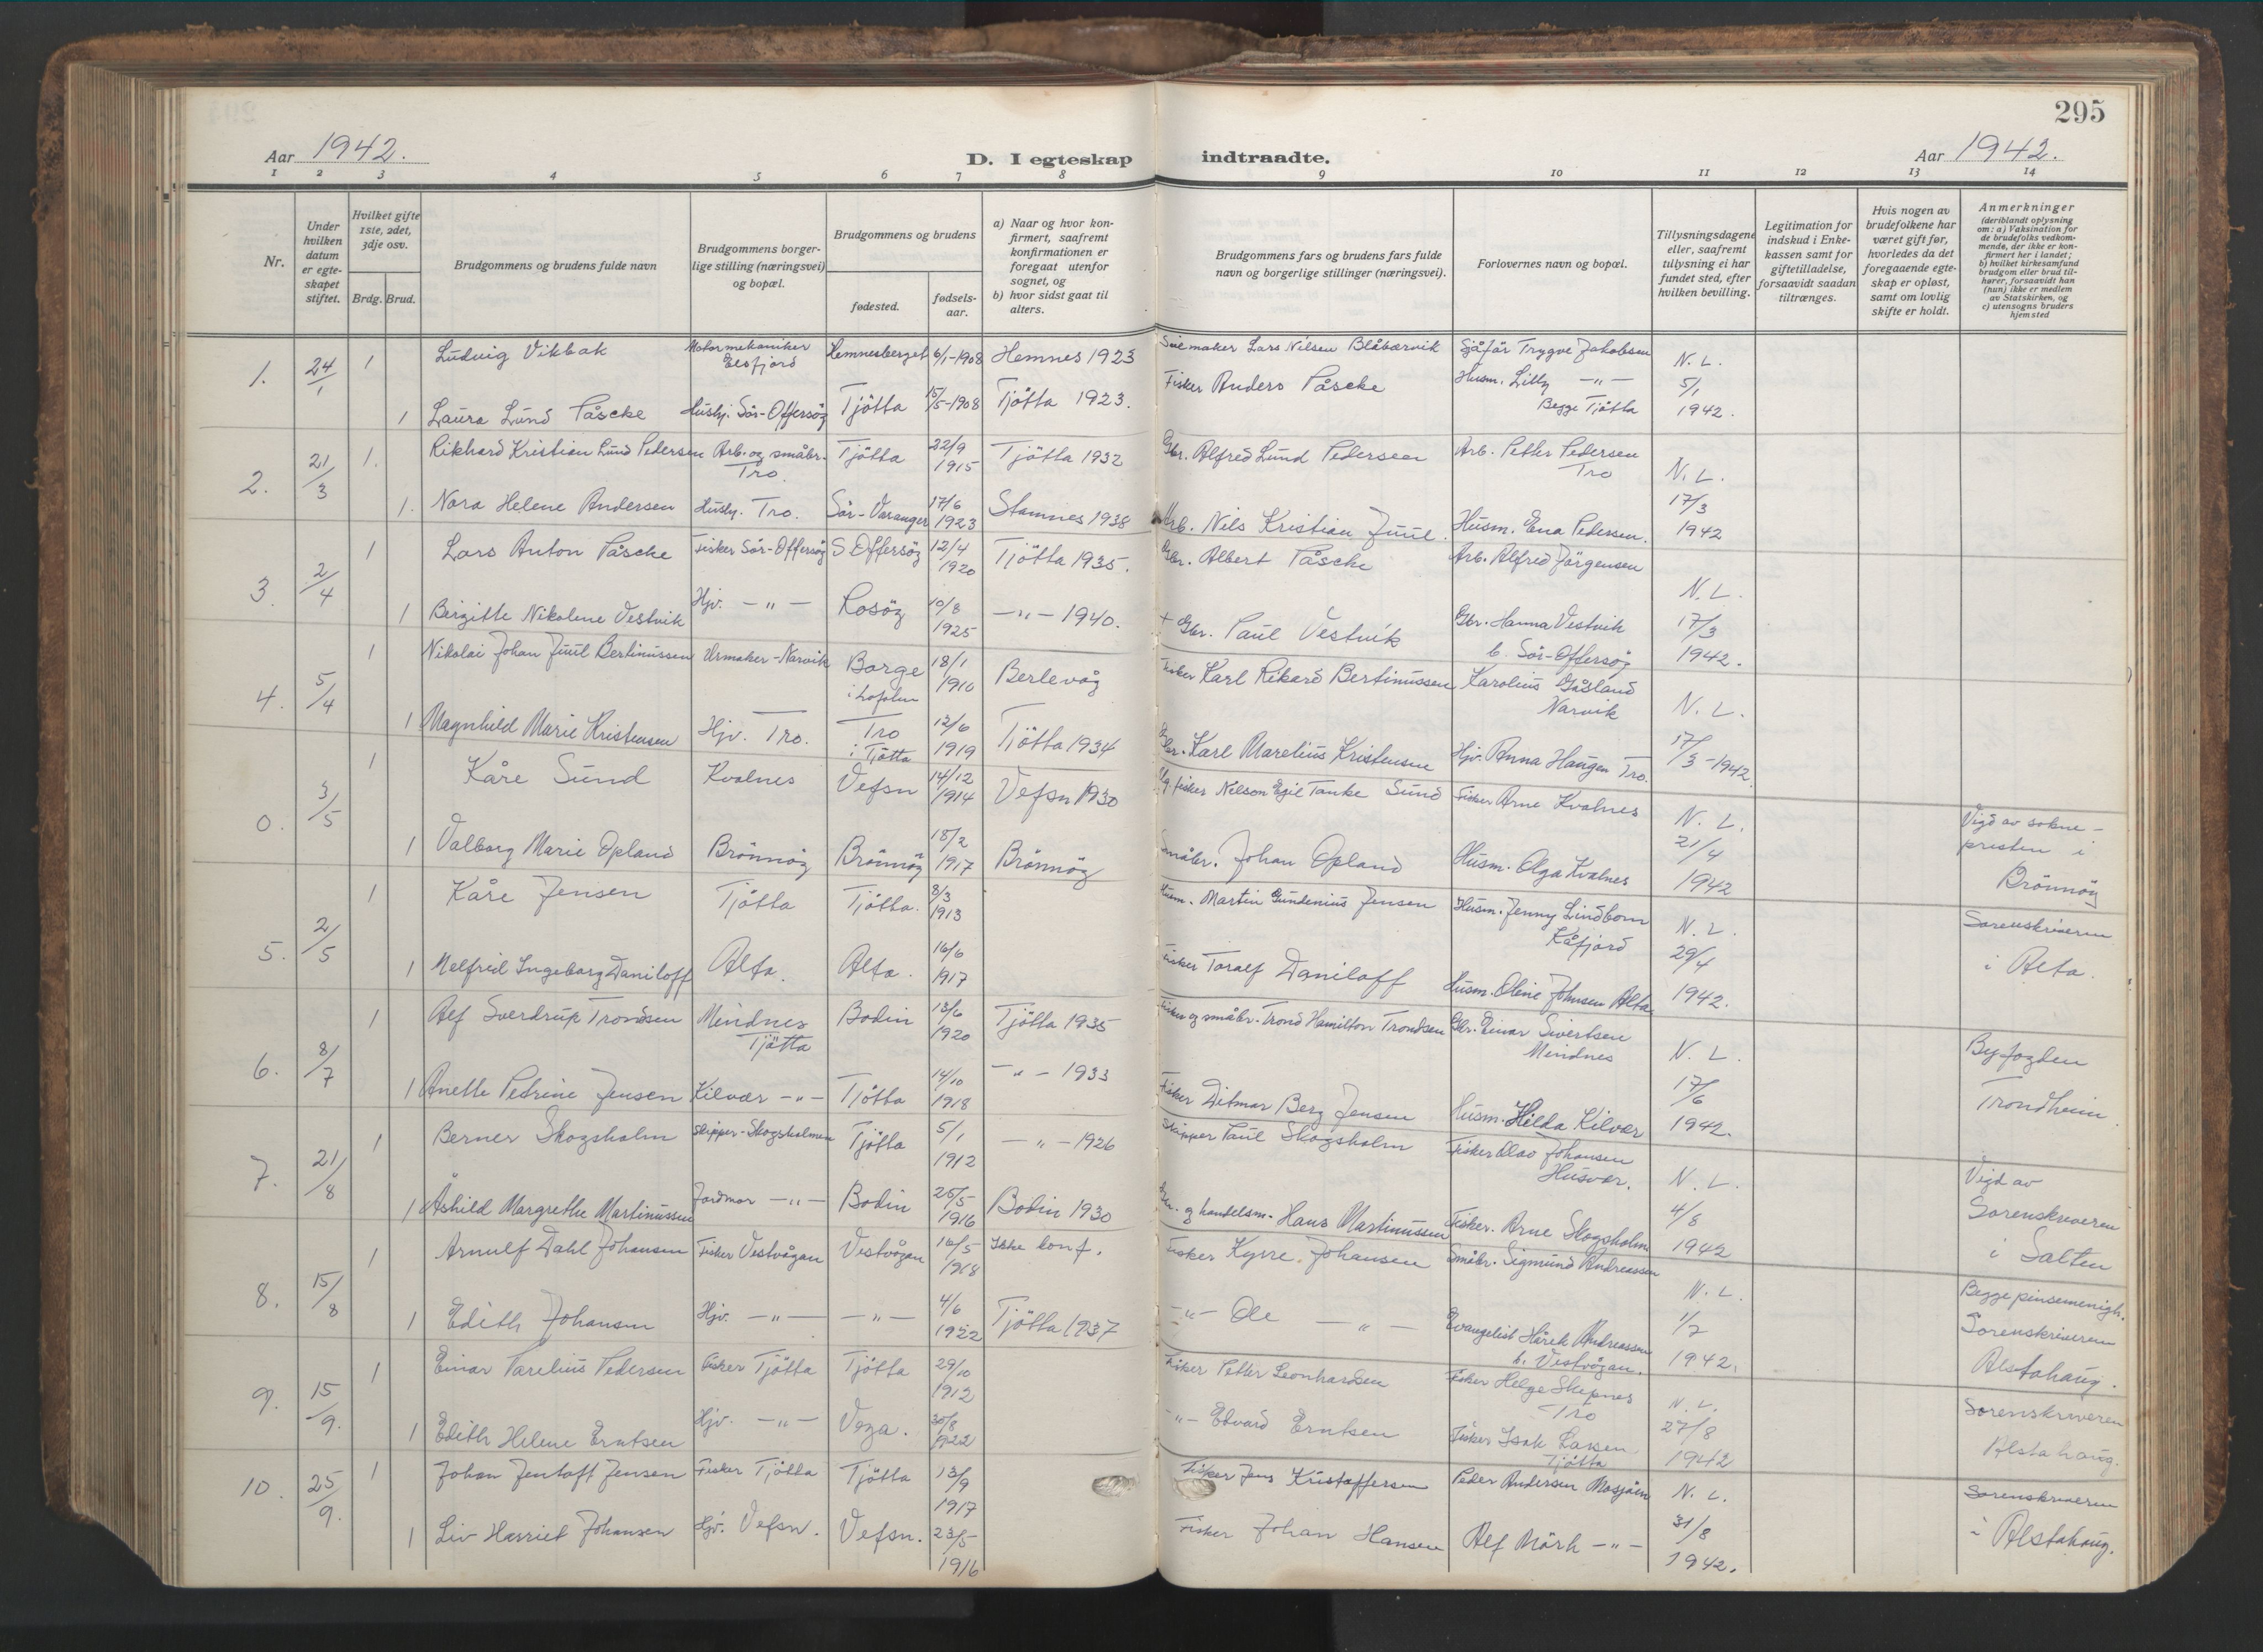 295
Aar 1942.
D. I egteskap indtraadte.
Aar 1942.
1 2 3 4 5 6 7 8 9 10 11 12 13 14
Nr.
Under hvilken datum er egteskapet stiftet.
Hvilket gifte 1ste, 2det, 3dje osv.
Brdg. Brud.
Brudgommens og brudens fulde navn
Brudgommens borgerlige stilling (næringsvei) og bopæl.
Brudgommens og brudens
fødested.
fødselsaar.
a) Naar og hvor konfirmert, saafremt konfirmationen er foregaat utenfor sognet, og
b) hvor sidst gaat til alters.
Brudgommens fars og brudens fars fulde navn og borgerlige stillinger (næringsvei).
Forlovernes navn og bopæl.
Tillysningsdagene eller, saafremt tillysning ei har fundet sted, efter hvilken bevilling.
Legitimation for indskud i Enkekassen samt for giftetilladelse, forsaavidt saadan tiltrænges.
Hvis nogen av brudefolkene har været gift før, hvorledes da det foregaaende egteskap er opløst, samt om lovlig skifte er holdt.
Anmerkninger
(deriblandt oplysning om: a) Vaksination for de brudefolks vedkommende, der ikke er konfirmert her i landet; b) hvilket kirkesamfund brudgom eller brud tilhører, forsaavidt han (hun) ikke er medlem av Statskirken, og c) utensogns bruders hjemsted
1. 24/1 1 Ludvig Vikbak Motormekaniker Elsfjord Hemnesberget 6/1-1908 Hemnes 1923 Lars Nilsen Blåbærvik Sjåfør Trygve Jakobsen N. L.
1 Laura Lund Påscke Hushj. Sör-Offersöy Tjötta 15/5-1908 Tjötta 1923. Fisker Anders Påscke Husm. Lilly -"- Begge Tjötta 5/1 1942.
2. 21/3 1. Rikhard Kristian Lund Pedersen Arb. og småbr. Tro. Tjötta 22/9 1915 Tjötta 1932 Gbr. Alfred Lund Pedersen Arb. Petter Pedersen Tro N. L.
1. Nora Helene Andersen Hushj. Tro. Sör-Varanger 17/6 1923 Stamnes 1938 Arb. Nils Kristian Juul. Husm. Ena Pedersen. 17/3 1942
3. 2/4 1 Lars Anton Påscke Fisker Sör-Offersöy S Offersöy 12/4 1920 Tjötta 1935. Gbr. Albert Påscke Arb. Alfred Jörgensen N. L.
1 Birgitte Nikoline Vestvik Hjv. -"- Rosöy 10/8 1925 -"- 1940. + Gbr. Paul Vestvik Gbr. Hanna Vestvik b. Sör-Offersöy 17/3 1942.
4. 5/4 1 Nikolai Johan Juul Bertinussen Urmaker-Narvik Borge i Lofoten 18/1 1910 Berlevåg Fisker Karl Rikard Bertinussen Karolius Gåsland Narvik N. L.
1 Magnhild Marie Kristensen Hjv. Tro. Tro i Tjøtta 12/6 1919 Tjötta 1934 Gbr. Karl Marelius Kristensen Hjv. Anna Haugen Tro. 17/3-1942
0. 3/5 1 Kåre Sund Kvalnes Vefsn 14/12 1914 Vefsn 1930 fisker Nelson Egil Tanke Sund Fisker Arne Kvalnes N. L. Vigd av sokne-
1 Valborg Marie Opland Brönnöy Brönnöy 18/2 1917 Brönnöy Småbr. Johan Opland Husm. Olga Kvalnes 21/4 1942 presten i Brönnöy
5. 2/5 1 Kåre Jensen Tjötta Tjötta. 3/3 1913 Husm. Martin Gundenius Jensen Husm. Jenny Lindbom Kåfjord N. L. Sorenskriveren
1 Melfrid Ingeborg Daniloff Alta. Alta. 16/6 1917 Fisker Toralf Daniloff Husm. Oline Johnsen Alta 29/4 1942. i Alta.
6. 8/7 1 Alf Sverdrup Trondsen Mindnes Tjötta Bodin 13/6 1920 Tjötta 1935 Fisker og småbr. Trond Hamilton Trondsen Gbr. Einar Sivertsen Mindnes N. L. Byfogden
1 Anette Petrine Jensen Kilvær -"- Tjötta 14/10 1918 -"- 1933 Fisker Ditmar Berg Jensen Husm. Hilda Kilvær 17/6 1942. Trondheim.
7. 21/8 1 Berner Skogsholm Skipper-Skogsholmen Tjötta 5/1 1912 -"- 1926 Skipper Paul Skogsholm Fisker Olav Johansen Husvær. N. L. Vigd av
1 Åshild Margrethe Martinussen Jordmor -"- Bodin 25/5 1916 Bodin 1930 Gbr. og handelsm. Hans Martinussen Fisker. Arne Skogsholm 4/8 1942 Sorenskriveren i Salten
8. 15/8 1 Arnulf Dahl Johansen Fisker Vestvågan Vestvågan 16/5 1918 Ikke konf. Fisker Kyrre Johansen Småbr. Sigmund Andreassen N. L. Begge pinsemenigh.
1 Edith Johansen Hjv. -"- -"- 4/6 1922 Tjötta 1937 -"- Ole -"- Evangelist Hårek Andreassen b. Vestvågan. 1/7 1942. Sorenskriveren Alstahaug.
9. 15/9. 1 Einar Parelius Pedersen Fisker Tjötta Tjötta 29/10 1912 Fisker Petter Leonhardsen Fisker Helge Skepnes Tro N. L. Sorenskriveren
1 Edith Helene Erntsen Hjv. -"- Vega. 30/8 1922 -"- Edvard Erntsen Fisker Isak Larsen. Tjötta 27/8 1942 Alstahaug.
10. 25/9. 1 Johan Jentoft Jensen Fisker Tjötta Tjötta 13/9 1917 Fisker Jens Kristoffersen Peder Andersen Mosjöen N. L. Sorenskriveren
1 Liv Harriet Johansen Hjv. Vefsn. Vefsn. 23/5- 1916 Fisker Johan Hansen Alf Mörk -"- 31/8 1942. i Alstahaug.